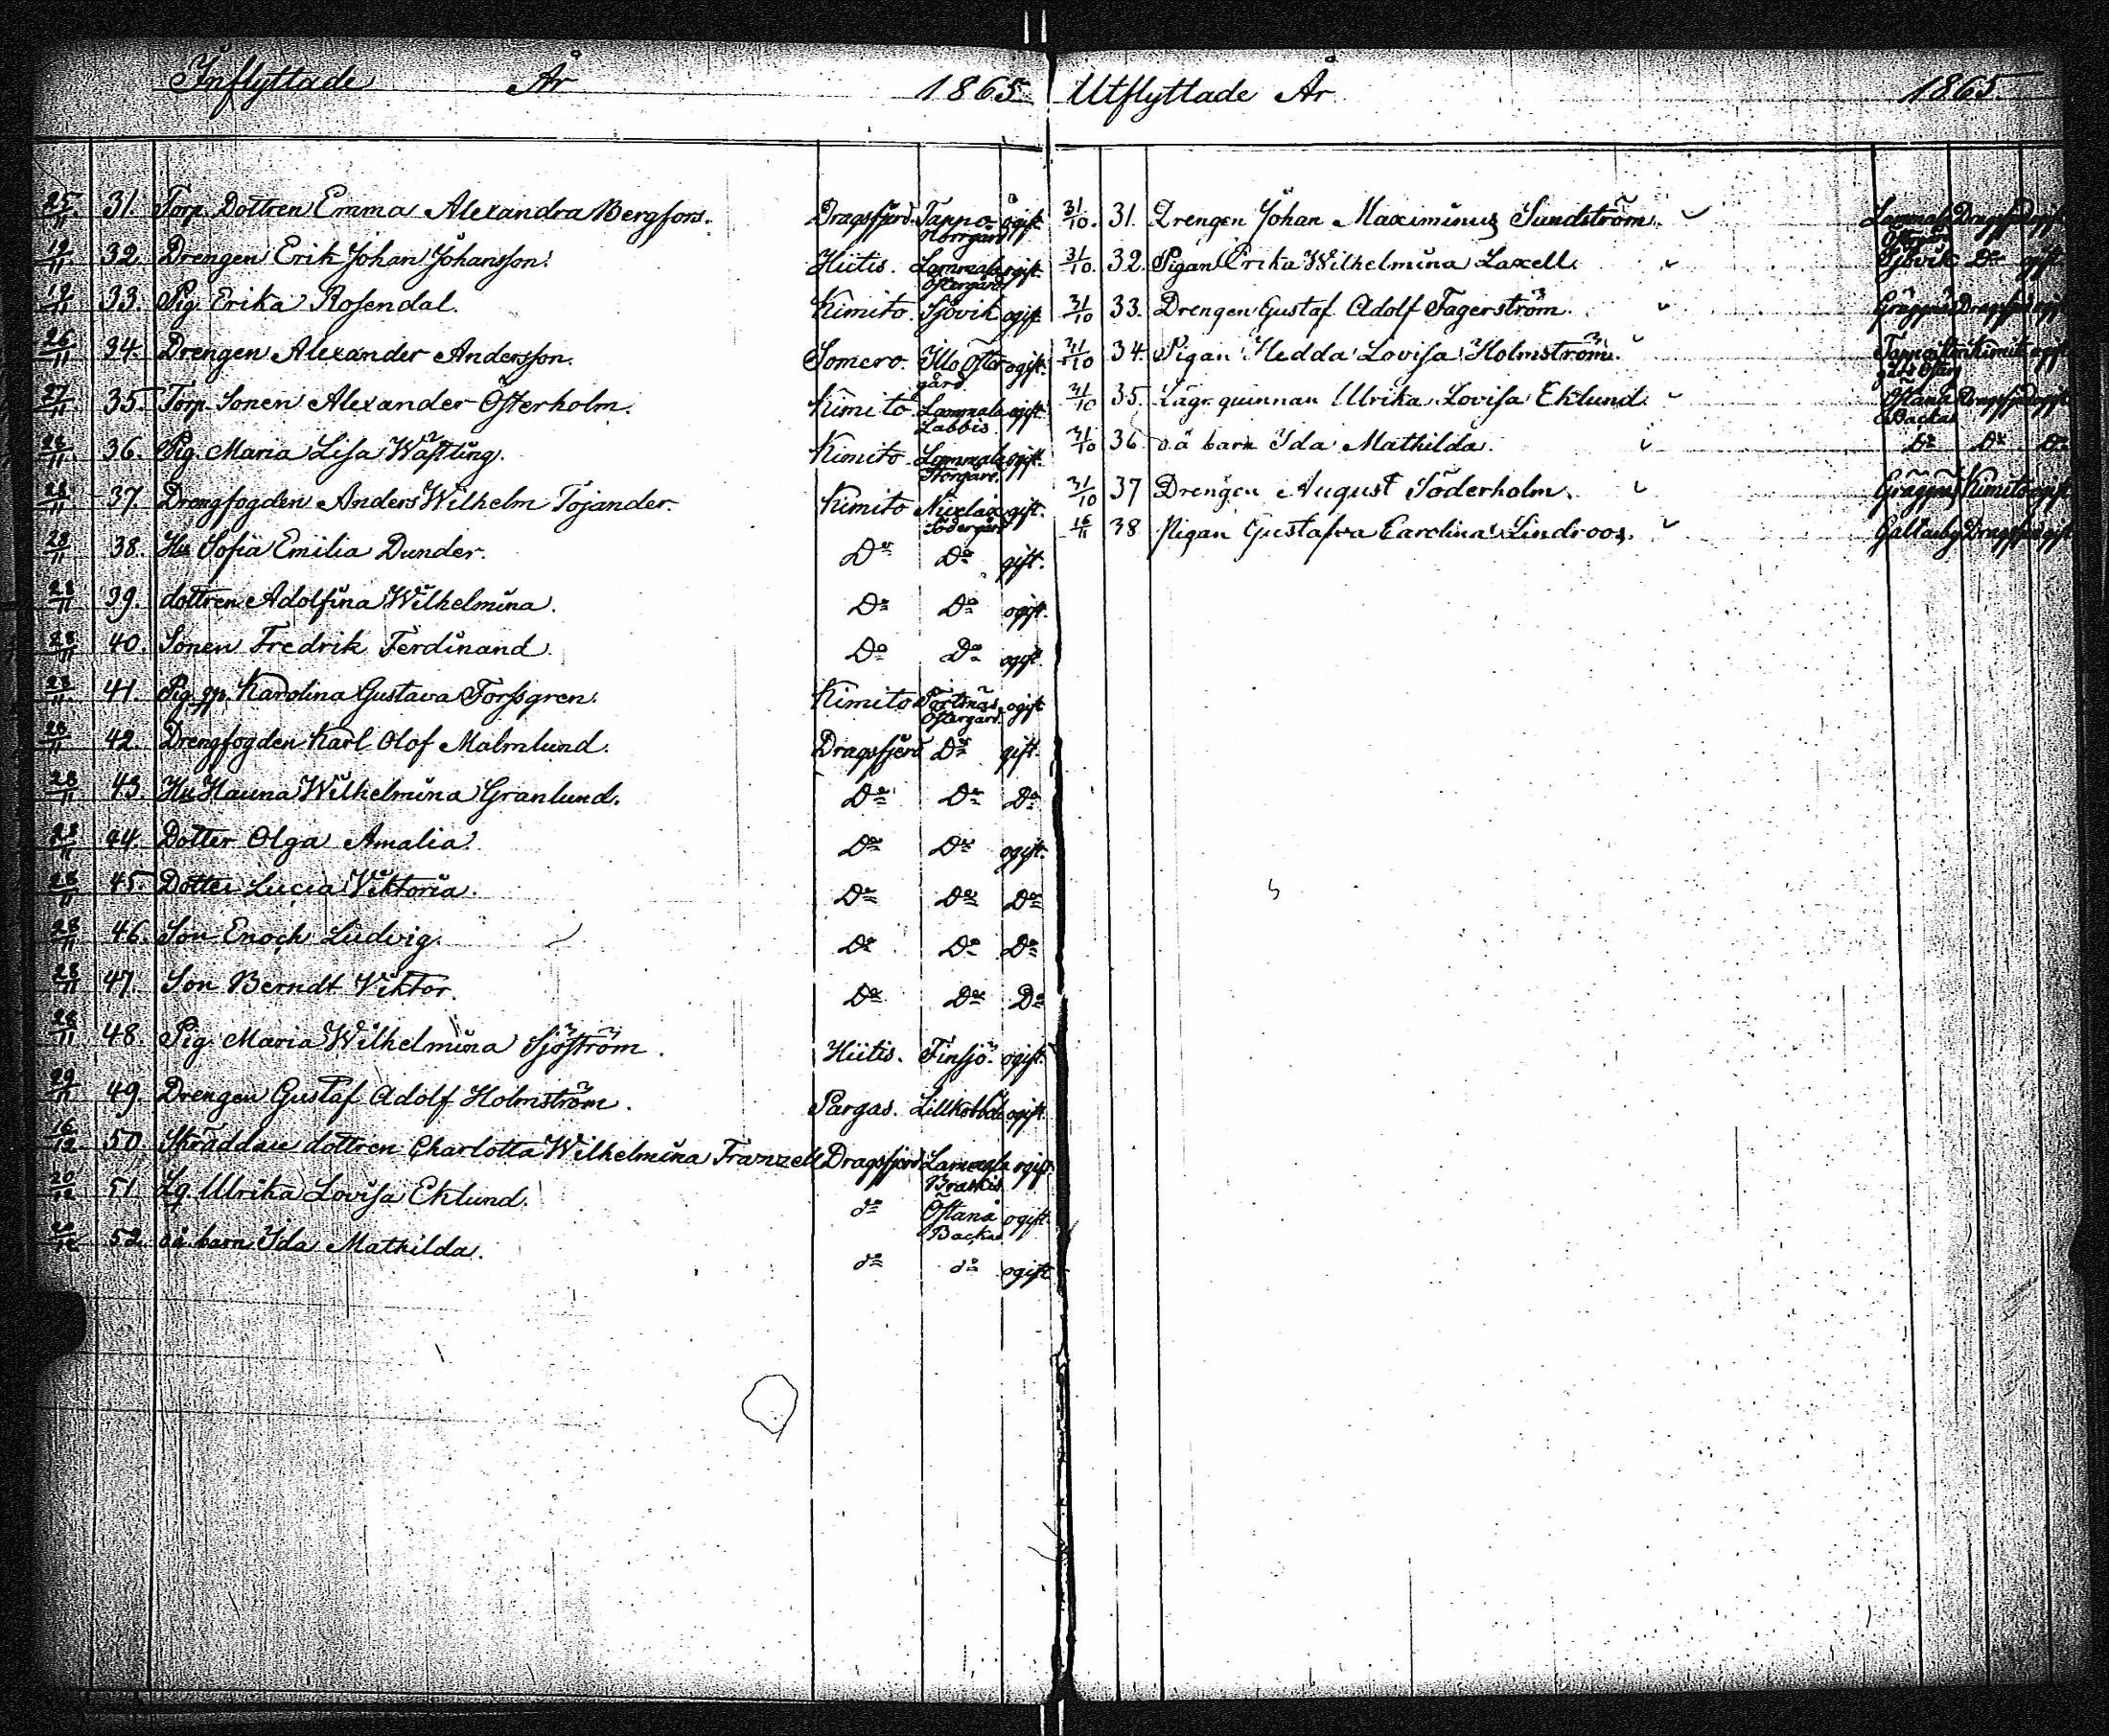 Inflyttade År 1865
25/11 31. Torp. Dottren Emma Alexandra Bergfors. Dragsfjerd. Tappo Norrgård ogift
19/11 32. Drengen Erik Johan Johansson. Hiitis. Lammala Östergård ogift.
19/11 33. Pig. Erika Rosendal. Kimito. Sjövik ogift
26/11 34. Drengen Alexander Andersson. Somero. Illo Öster gård ogift.
27/11 35. Torp. Sonen Alexander Österholm. Kimito Lammala Labbis ogift.
28/11 36. Pig. Maria Lisa Wästling. Kimito Lammala Storgård. ogift.
28/11 37. Drengfogden Anders Wilhelm Tojander. Kimito Nivelax Södergård gift.
28/11 38. Hu Sofia Emilia Dunder. Do Do gift.
28/11 39. dottren Adolfina Wilhelmina. Do Do ogift.
28/11 40. Sonen Fredrik Ferdinand. Do Do ogift.
28/11 41. Pig. Karolina Gustava Forssgren. Kimito Östergård. ogift
28/11 42. Drengfogden Karl Olof Malmlund. Dragsfjerd Do gift.
28/11 43. Hu Hanna Wilhelmina Granlund. Do Do Do
28/11 44. Dotter Olga Amalia. Do Do ogift.
28/11 45. Dotter Lucia Viktoria. Do Do Do
28/11 46. Son Enoch Ludvig. Do Do Do
28/11 47. Son Berndt Viktor. Do Do Do
28/11 48. Pig. Maria Wilhelmina Sjöström. Hiitis. Finsjö. ogift.
29/11 49. Drengen Gustaf Adolf Holmström. Pargas. ogift.
16/12 50. Skräddare dottren Charlotta Wilhelmina Franzell Dragsfjerd Lammala ogift
20/12 51. Lg. Ulrika Lovisa Eklund. do Östanå Backa ogift.
20/12 52. o.ä. barn Ida Mathilda. do do ogift
Utflyttade År 1865.
31/10. 31. Drengen Johan Maximinus Sundström. Lammala Östergård Dragsfjerd ogift
31/10. 32. Pigan Erika Wilhelmina Laxell. Sjövik Do ogift
31/10 33. Drengen Gustaf Adolf Fagerström. Gräggnäs Dragsfjerd ogift
31/10 34. Pigan Hedda Lovisa Holmström. Kimito ogift
31/10 35. Lägr. quinnan Ulrika Lovisa Eklund. Östanå Backas Dragsfjerd ogift
31/10 36. o.ä barn Ida Mathilda. Do Do Do
31/10 37 Drengen August Söderholm. Gräggnäs Kimito ogift
16/11 38 Pigan Gustafva Carolina Lindroos. Galtarby Dragsfjerd ogift